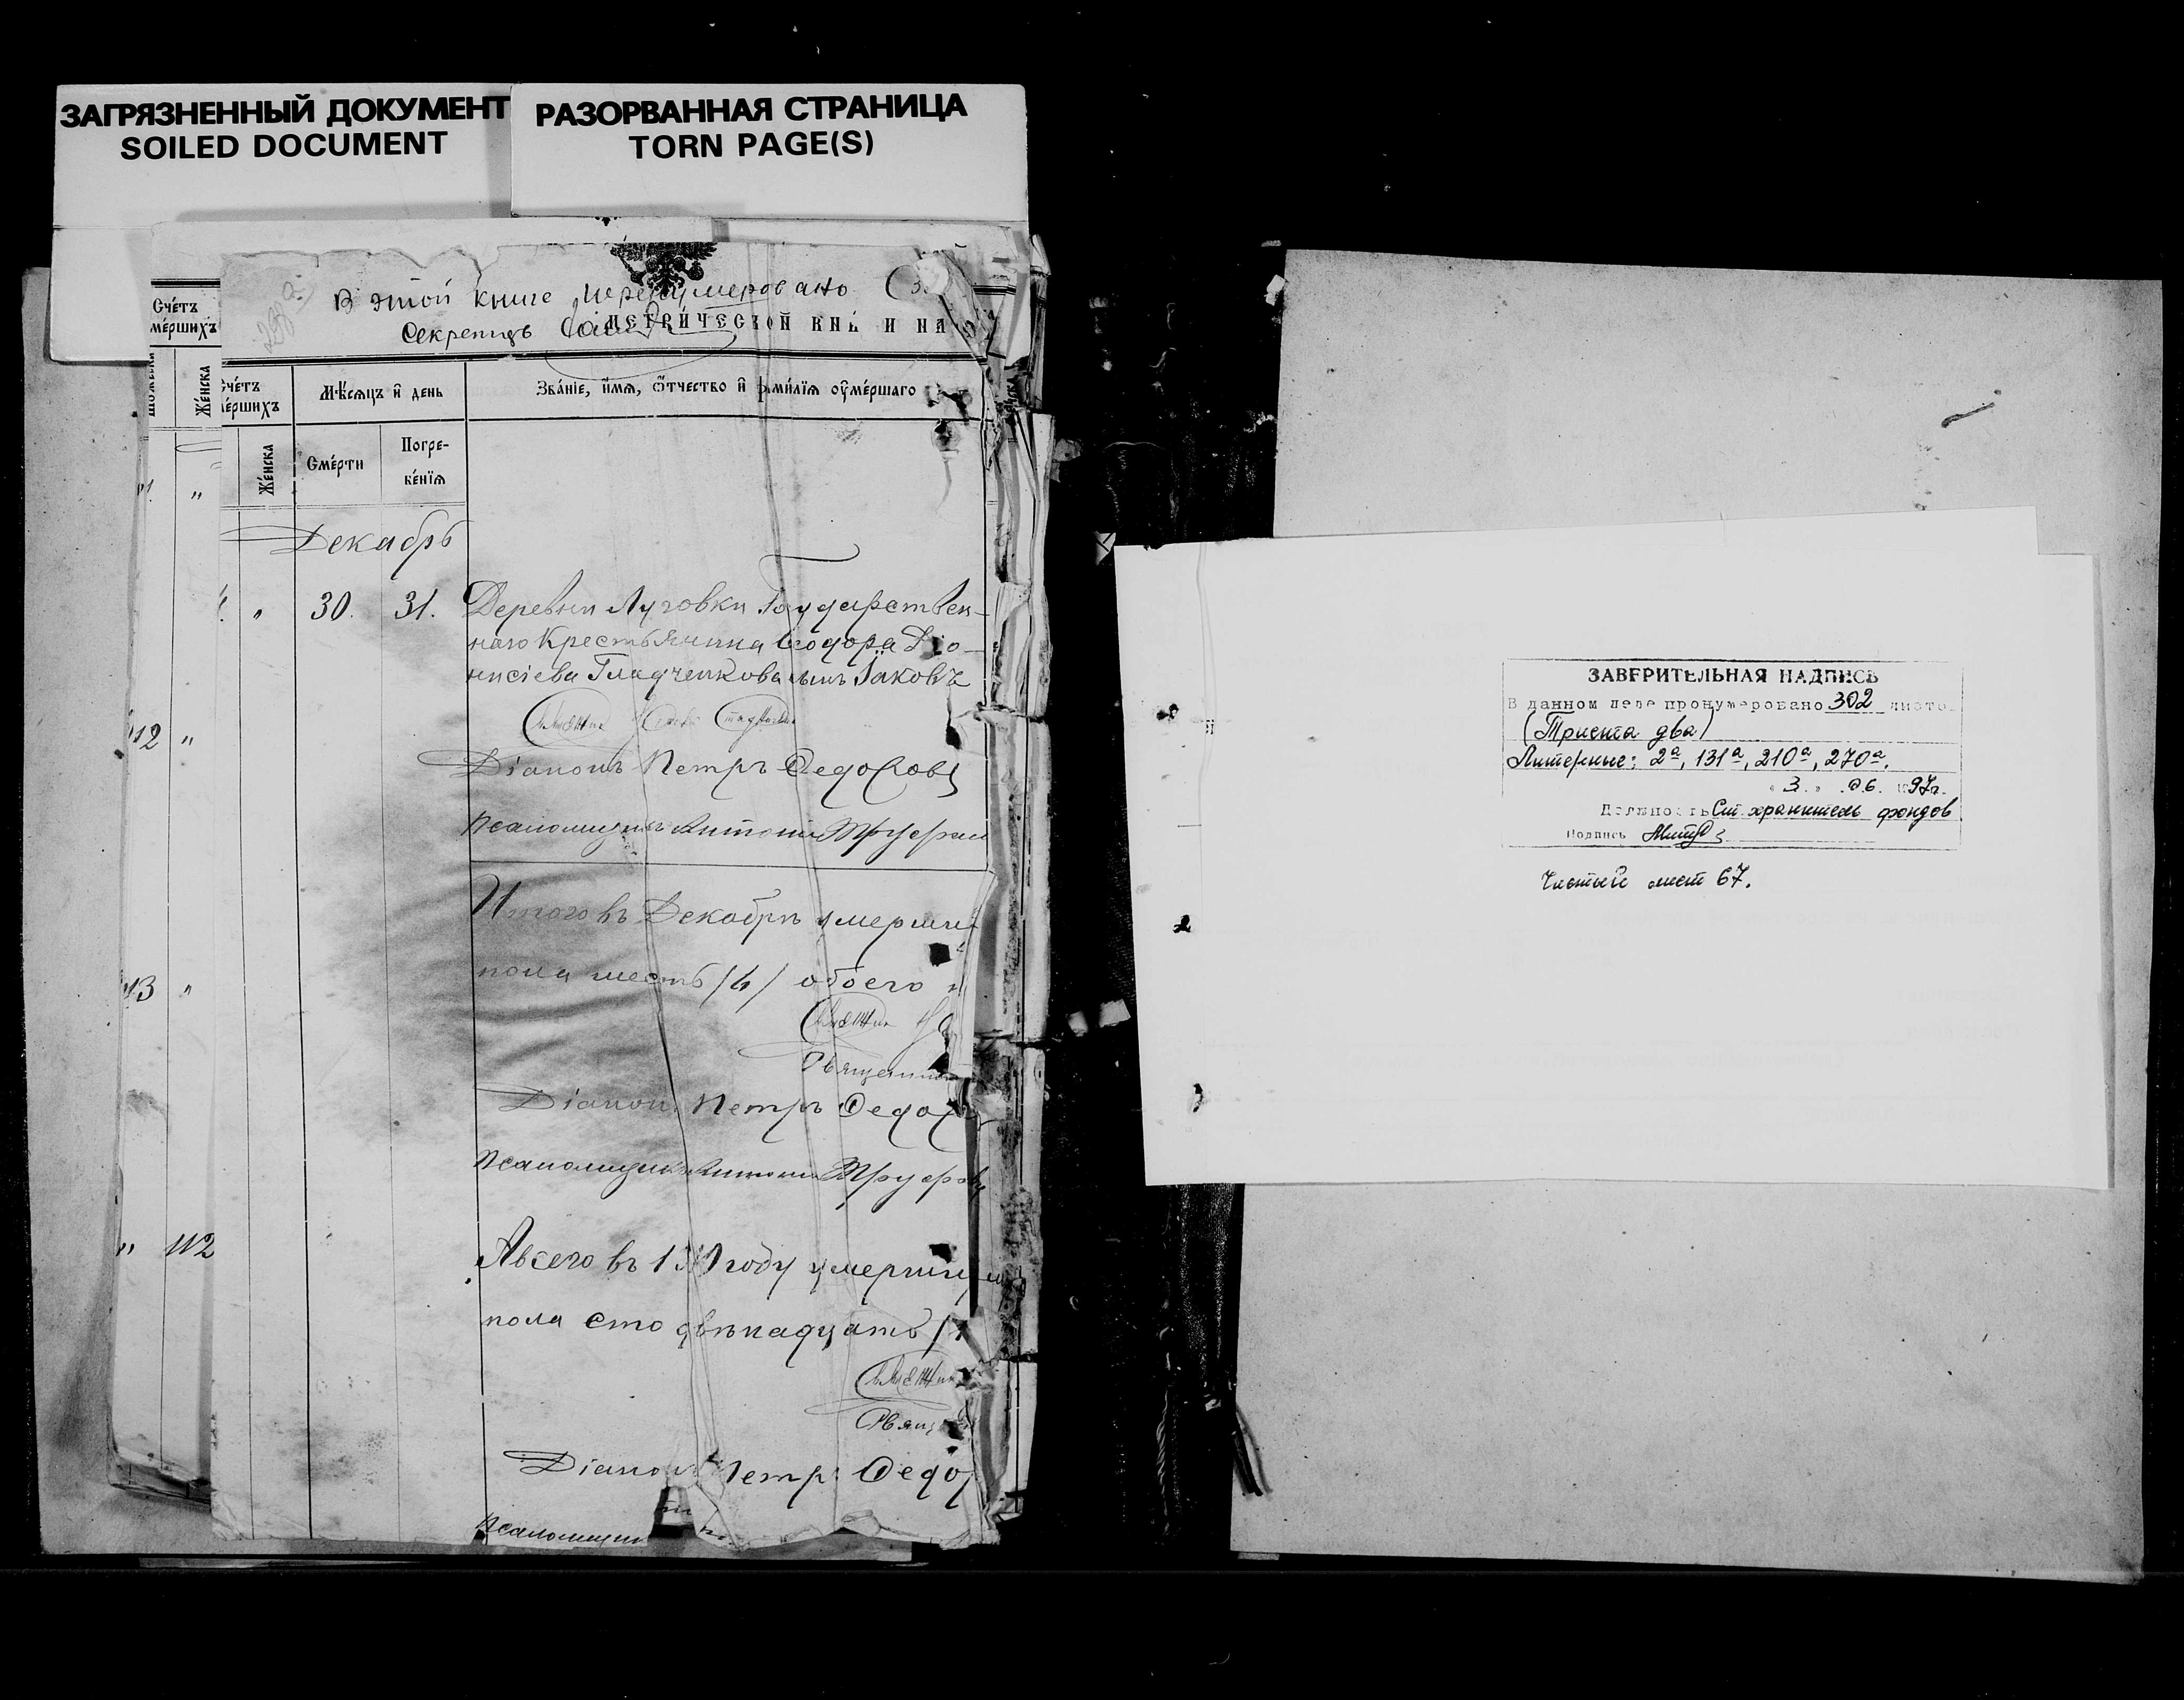 ЗАГРЯЗНЕННЫЙ ДОКУМЕНТ
SOILED DOCUMENT
РАЗОРВАННАЯ СТРАНИЦА
TORN PAGE(S)
В этой книге перенумеровано
Секретарь
МЕТРИ́ЧЕСКОЙ КНИ НА
Сче́тъ
ме́ршихъ
Же́нска
Сче́тъ
ме́ршихъ
Мѣ́сяцъ и҆ день
Зва́нїе, и҆́мѧ, ѻ҆́тчество и҆ фами́лїѧ оу҆ме́ршаго
Же́нска
Сме́рти
Погре-
бе́нїѧ
Декабрь
„ 30. 31. Деревни Луговки Государствен-
наго Крестьянина Ѳеодора Діо-
нисіева Гладченкова сынъ Іаковъ
Діаконъ Петръ Ѳедоровъ
Псаломщикъ Антоній
112 „
113 „
„ 112
Итого въ Декабрѣ умерши
пола шесть /6/ обоего
Священни
Діаконъ Петръ Ѳедор
Псаломщикъ Антоній
А всего въ году умерши
пола сто двѣнадцать /1
Свящ
Діаконъ Петръ Ѳедо
Псаломщик
ЗАВЕРИТЕЛЬНАЯ НАДПИСЬ
В данном деле пронумеровано 302 листо
(Триста два)
Литерные: 2а, 131а, 210а, 270а.
„ 3 „ 06. 1997г.
Должность Ст. хранитель фондов
Подпись
Чистый лист 67.